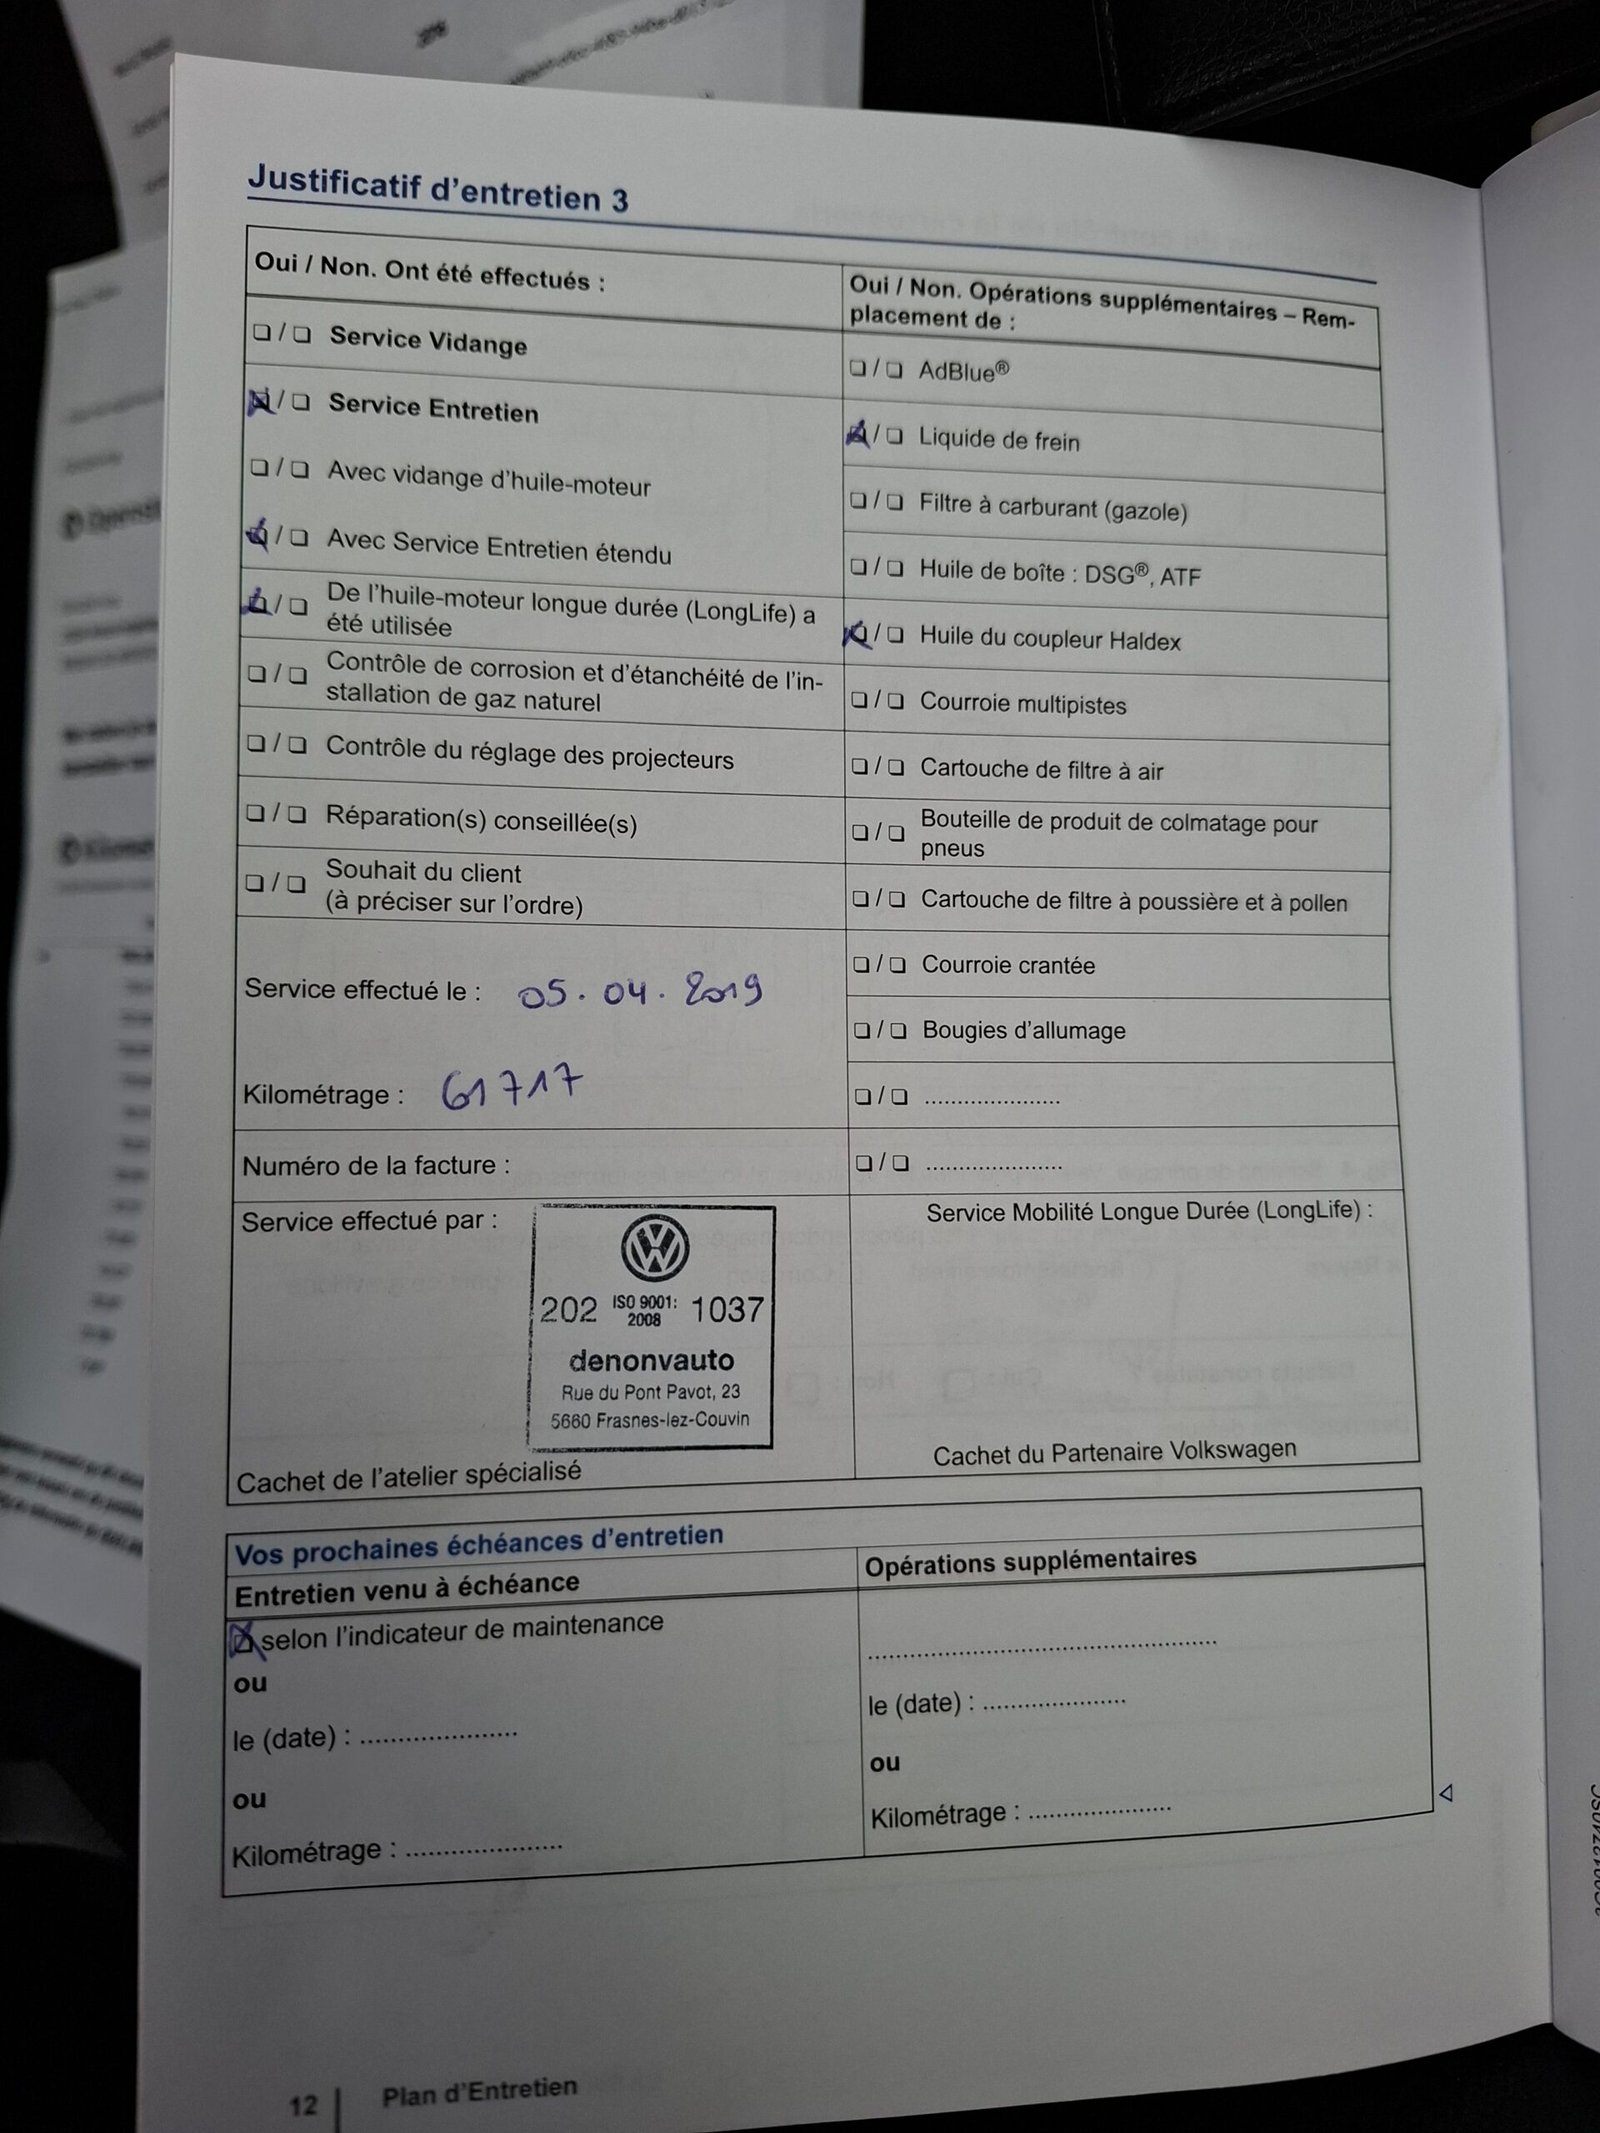 Justificatif d'entretien 3
Oui / Non. Ont été effectués :
❏ / ❏ Service Vidange
☒ / ❏ Service Entretien
❏ / ❏ Avec vidange d'huile-moteur
☒ / ❏ Avec Service Entretien étendu
☒ / ❏ De l'huile-moteur longue durée (LongLife) a
été utilisée
❏ / ❏ Contrôle de corrosion et d'étanchéité de l'in-
stallation de gaz naturel
❏ / ❏ Contrôle du réglage des projecteurs
❏ / ❏ Réparation(s) conseillée(s)
❏ / ❏ Souhait du client
(à préciser sur l'ordre)
Service effectué le : 05.04.2019
Kilométrage : 61717
Numéro de la facture :
Service effectué par :
202 ISO 9001: 1037
2008
denonvauto
Rue du Pont Pavot, 23
5660 Frasnes-lez-Couvin
Cachet de l'atelier spécialisé
Oui / Non. Opérations supplémentaires – Rem-
placement de :
❏ / ❏ AdBlue®
☒ / ❏ Liquide de frein
❏ / ❏ Filtre à carburant (gazole)
❏ / ❏ Huile de boîte : DSG®, ATF
☒ / ❏ Huile du coupleur Haldex
❏ / ❏ Courroie multipistes
❏ / ❏ Cartouche de filtre à air
❏ / ❏ Bouteille de produit de colmatage pour
pneus
❏ / ❏ Cartouche de filtre à poussière et à pollen
❏ / ❏ Courroie crantée
❏ / ❏ Bougies d'allumage
❏ / ❏ .....................
❏ / ❏ .....................
Service Mobilité Longue Durée (LongLife) :
Cachet du Partenaire Volkswagen
Vos prochaines échéances d'entretien
Entretien venu à échéance
☒ selon l'indicateur de maintenance
ou
le (date) : .....................
ou
Kilométrage : .....................
Opérations supplémentaires
..................................................
le (date) : .....................
ou
Kilométrage : .....................
12 | Plan d'Entretien